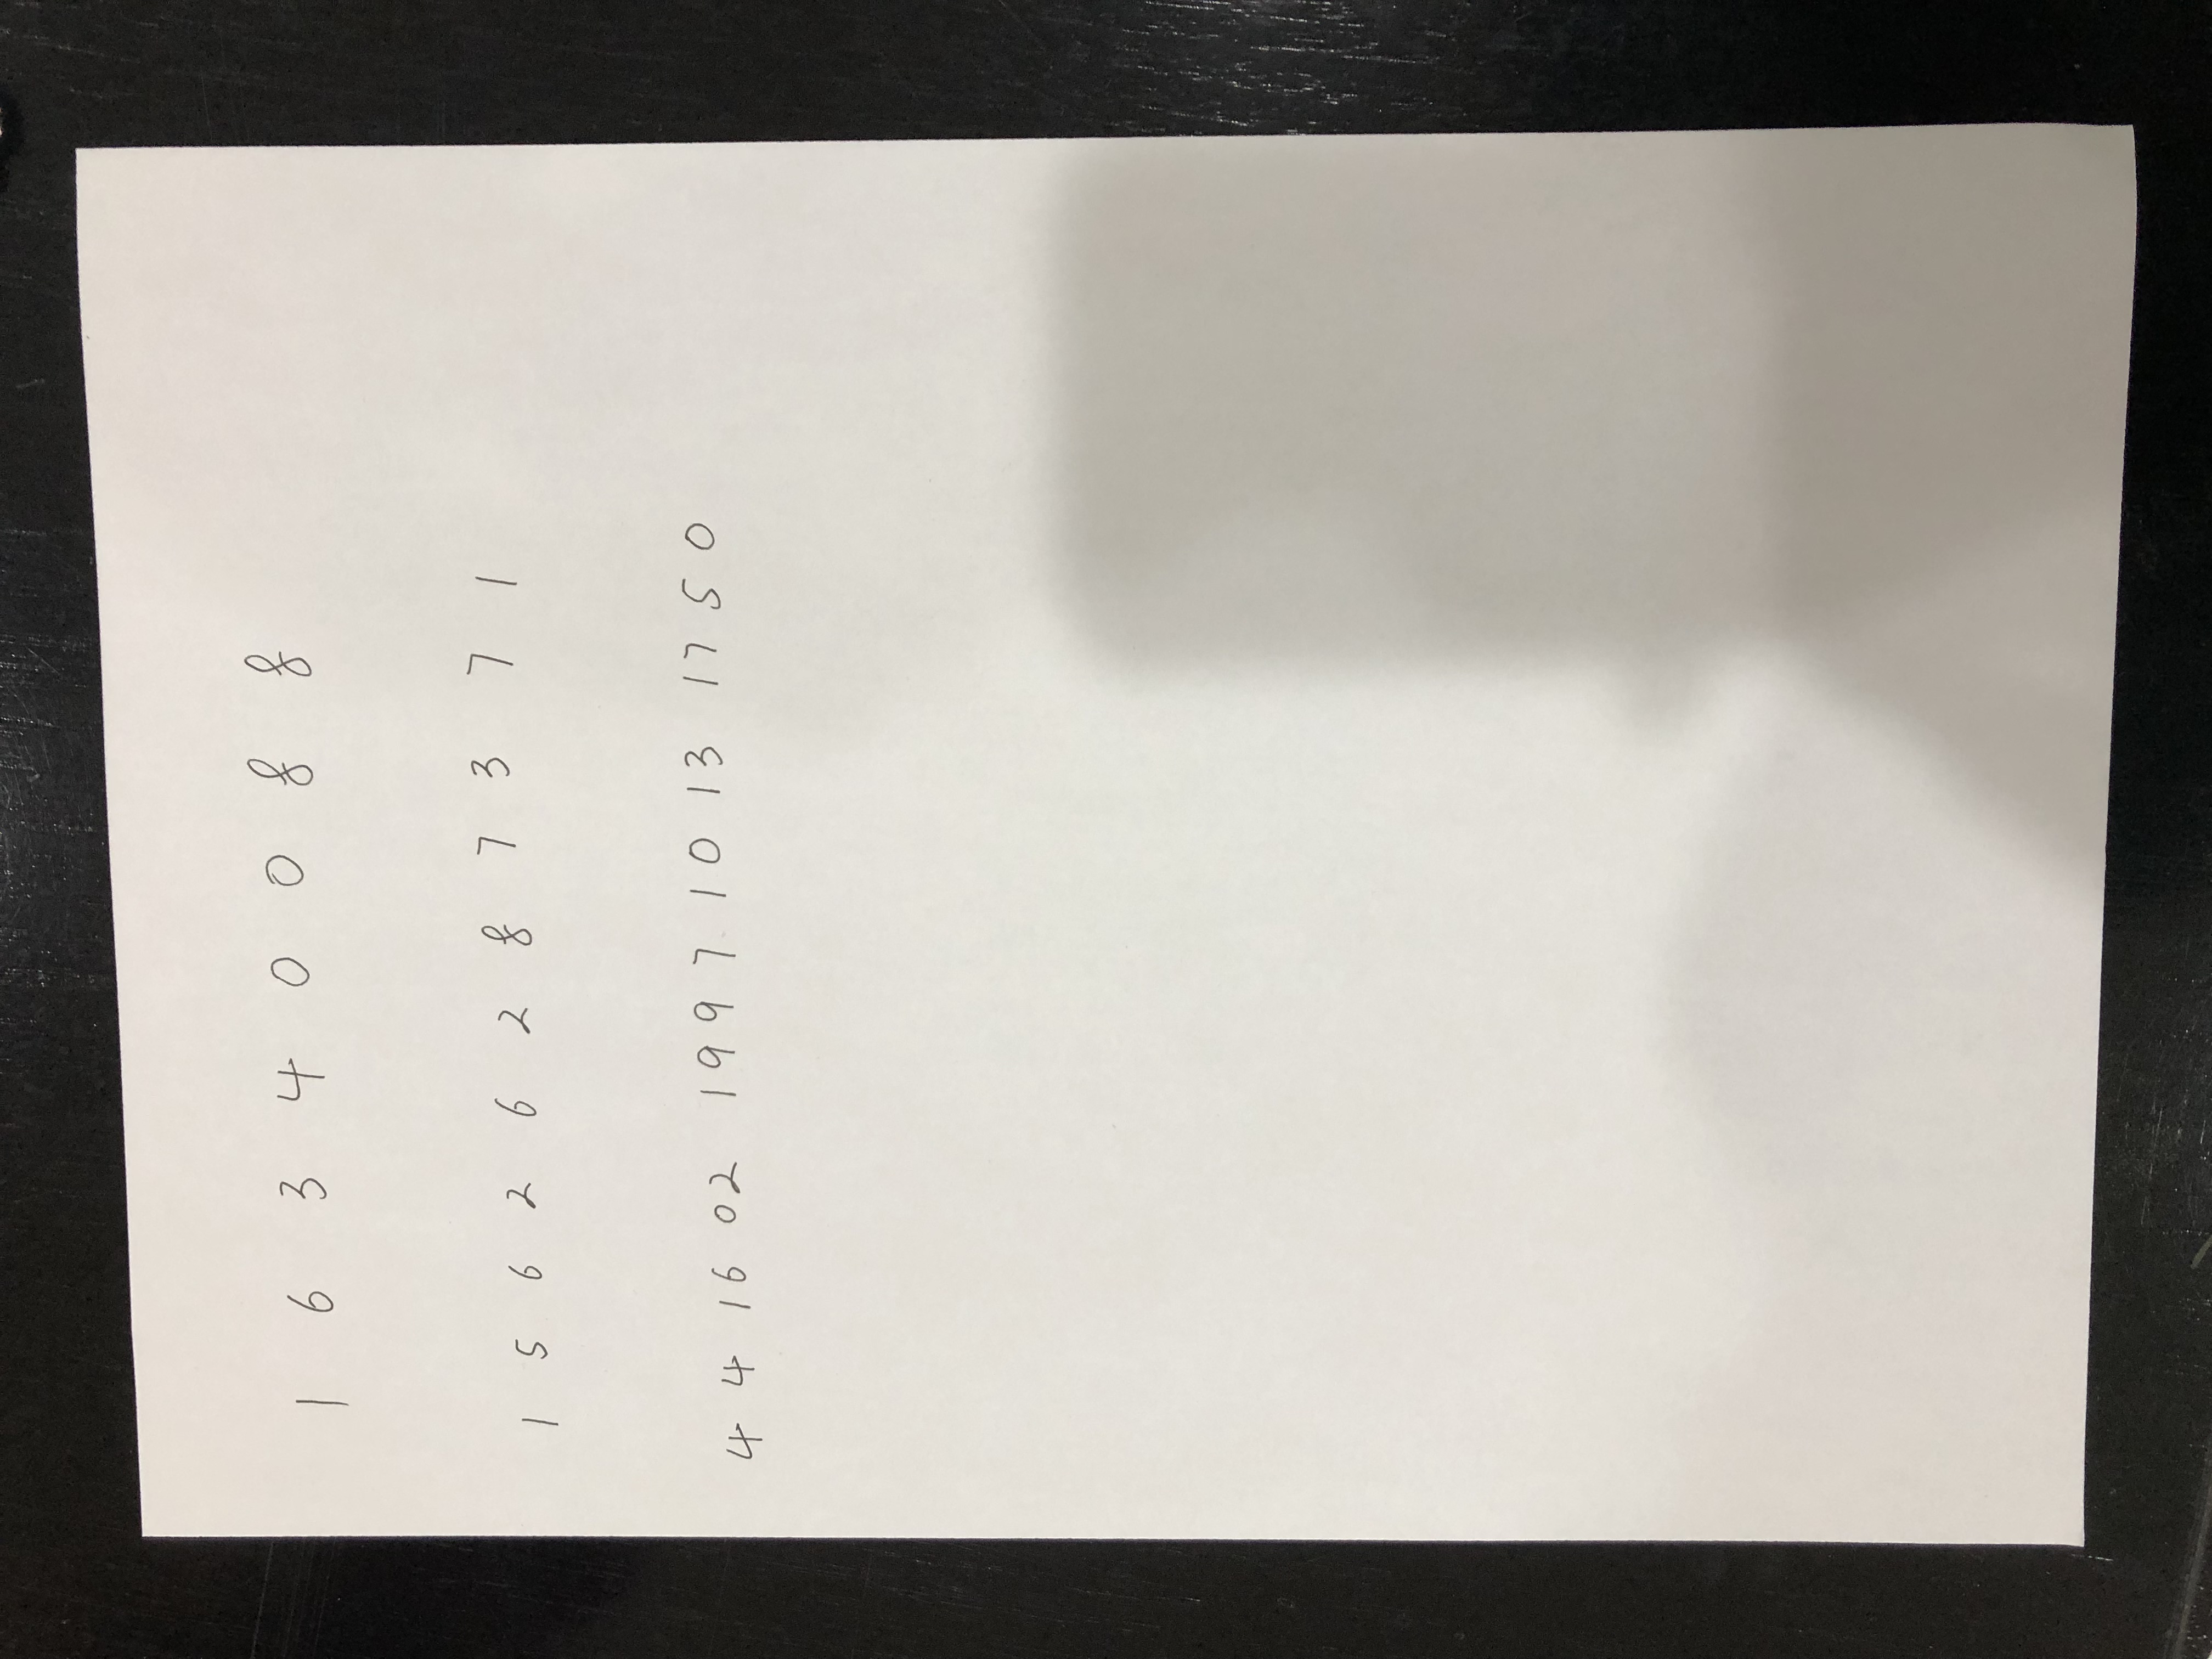 1 6 3 4 0 0 8 8
1 5 6 2 6 2 8 7 3 7 1
4 4 16 02 1997 10 13 17 5 0